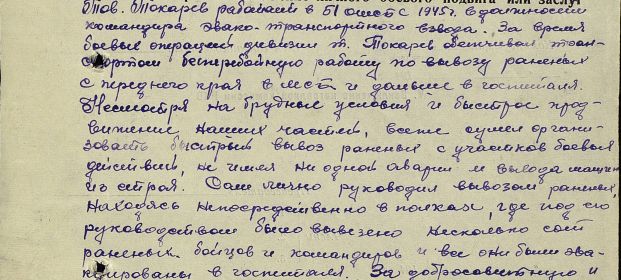 боевого подвига или заслуг
Тов. Токарев работает в 51 омсб с 1945 г. в должности
командира эвако-транспортного взвода. За время
боевых операций дивизии т. Токарев обеспечивал тран-
спортом бесперебойную работу по вывозу раненых
с переднего края в МСБ и дальше в госпиталя.
Несмотря на трудные условия и быстрое прод-
вижение наших частей, все же сумел органи-
зовать быстрый вывоз раненых с участков боевых
действий, не имея ни одной аварии и выхода машин
из строя. Сам лично руководил вывозом раненых,
находясь непосредственно в полках, где под его
руководством было вывезено несколько сот
раненых бойцов и командиров и все они были эва-
куированы в госпиталя. За добросовестную и